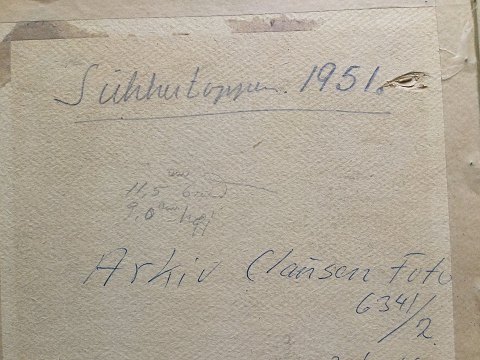 Sukkertoppen. 1951.
11,5 cm bred
9,0 cm høj
Arkiv Clausen Foto
6341/2